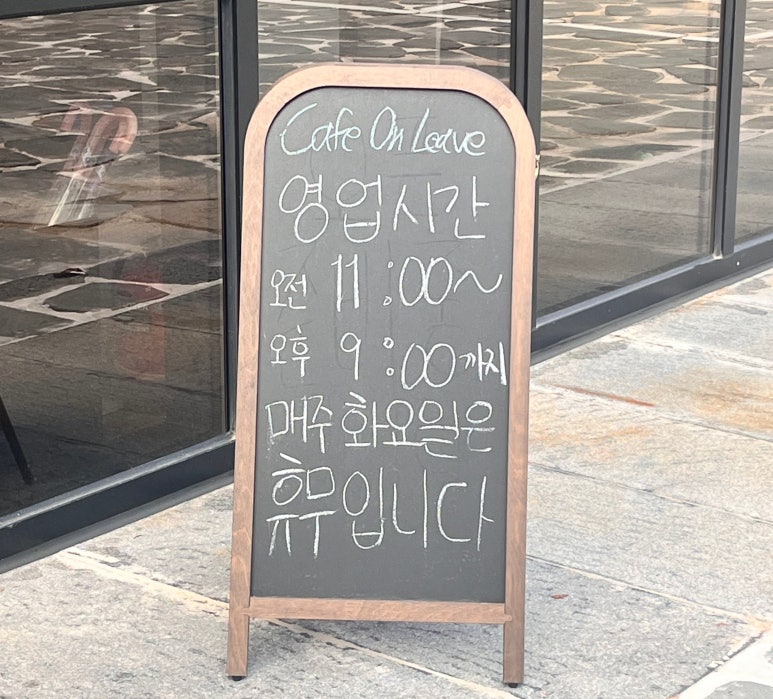 Cafe On Leave
영업시간
오전 11:00~
오후 9:00까지
매주 화요일은
휴무입니다